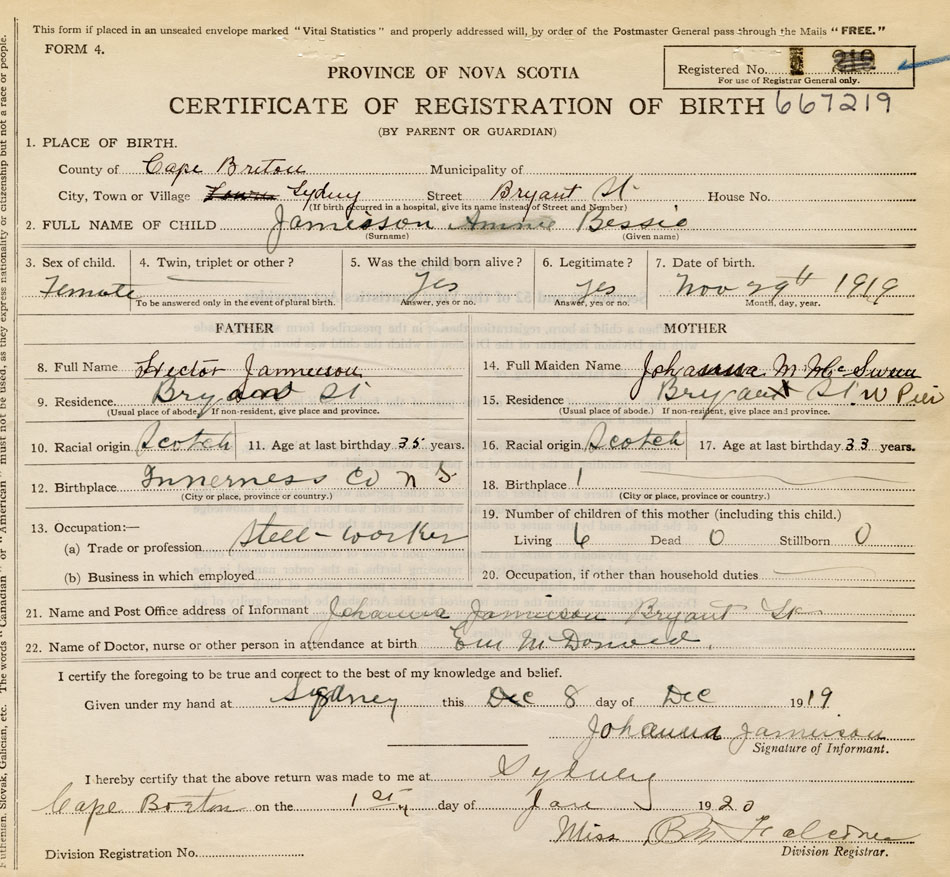 This form if placed in an unsealed envelope marked "Vital Statistics" and properly addressed will, by order of the Postmaster General pass through the Mails "FREE."
FORM 4.
PROVINCE OF NOVA SCOTIA
Registered No.
For use of Registrar General only.
CERTIFICATE OF REGISTRATION OF BIRTH 667219
(BY PARENT OR GUARDIAN)
1. PLACE OF BIRTH.
County of Cape Breton Municipality of
City, Town or Village Sydney Street Bryant St. House No.
(If birth occurred in a hospital, give its name instead of Street and Number)
2. FULL NAME OF CHILD Jamieson Annie Bessie
(Surname) (Given name)
3. Sex of child. 4. Twin, triplet or other? 5. Was the child born alive? 6. Legitimate? 7. Date of birth.
Female Yes Yes Nov 29th 1919
To be answered only in the event of plural birth. Answer, yes or no. Answer, yes or no. Month, day, year.
FATHER MOTHER
8. Full Name Hector Jamieson 14. Full Maiden Name Johanna M McSween
9. Residence. Bryant St 15. Residence Bryant St. W Pier
(Usual place of abode. If non-resident, give place and province. (Usual place of abode.) If non-resident, give place and province.
10. Racial origin Scotch 11. Age at last birthday 35 years. 16. Racial origin Scotch 17. Age at last birthday 33 years.
12. Birthplace Inverness Co N S 18. Birthplace
(City or place, province or country.) (City or place, province or country.)
13. Occupation:— 19. Number of children of this mother (including this child.)
(a) Trade or profession Steel-worker Living 6 Dead 0 Stillborn 0
(b) Business in which employed 20. Occupation, if other than household duties
21. Name and Post Office address of Informant Johanna Jamieson Bryant St
22. Name of Doctor, nurse or other person in attendance at birth McDonald
I certify the foregoing to be true and correct to the best of my knowledge and belief.
Given under my hand at Sydney this Dec 8 day of Dec 1919
Johanna Jamieson
Signature of Informant.
I hereby certify that the above return was made to me at Sydney
Cape Breton on the 1st day of Jan 1920
Miss B M Falconer
Division Registrar.
Division Registration No.
Ruthenian, Slovak, Galician, etc. The words "Canadian" or "American" must not be used, as they express nationality or citizenship but not a race or people.